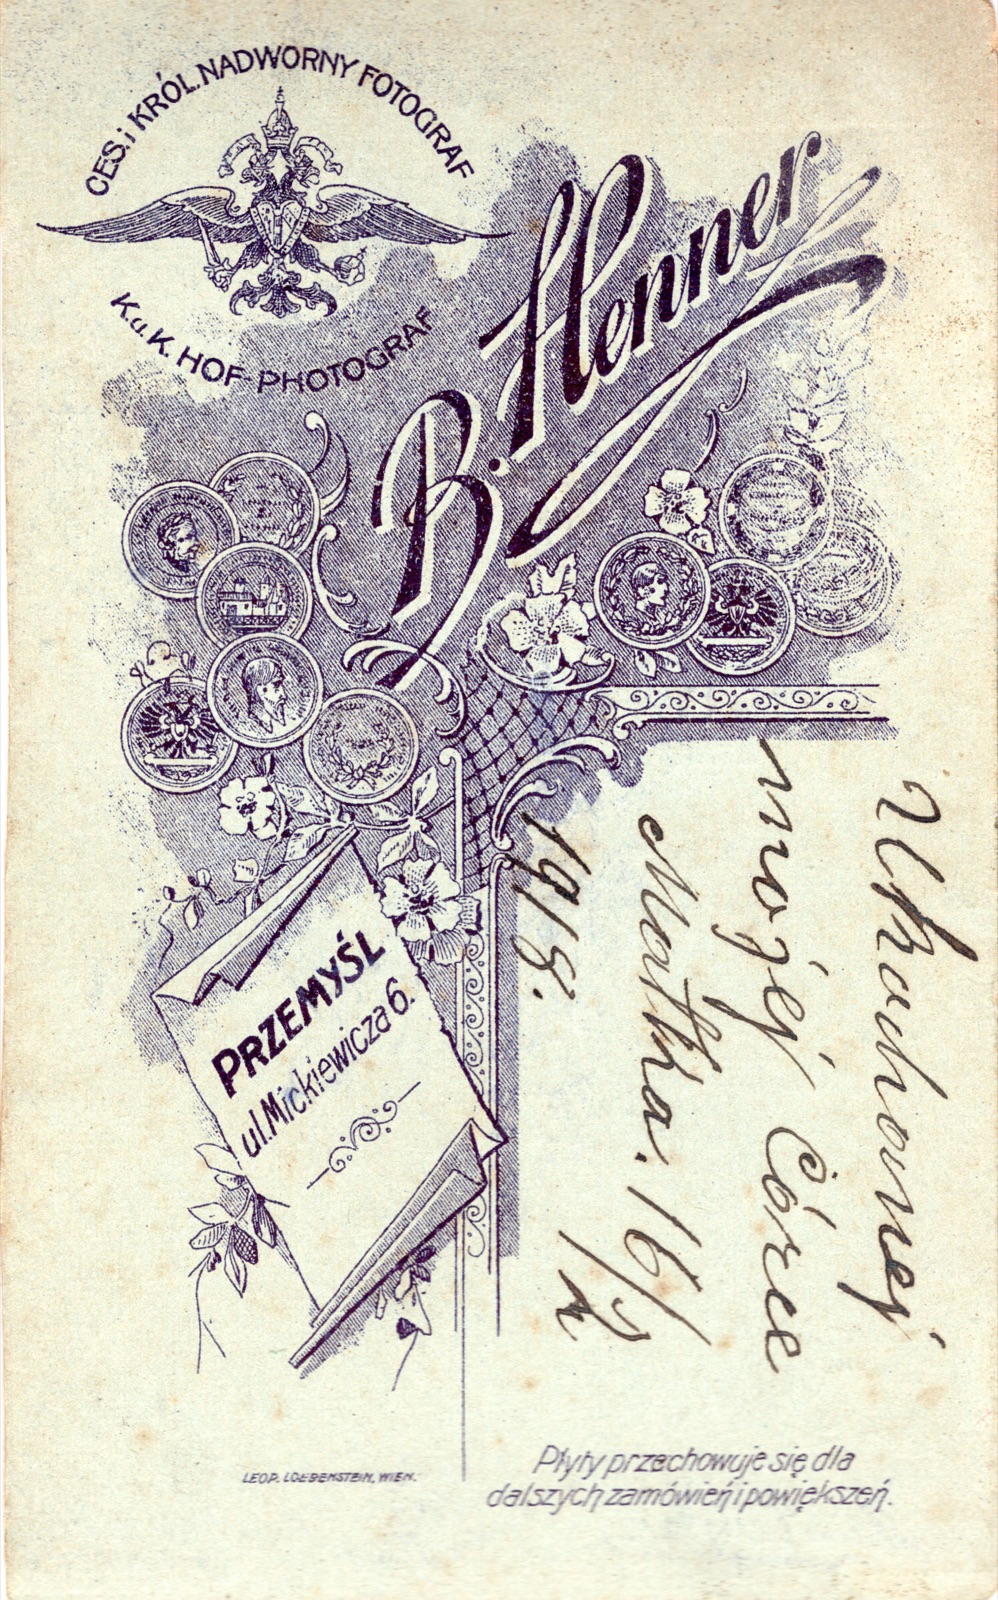 CES. i KRÓL. NADWORNY FOTOGRAF
K. u. K. HOF-PHOTOGRAF
B. Henner
PRZEMYŚL
ul. Mickiewicza 6.
Ukochanej
mojej Córce
Matka. 16/
1918.
LEOP. LOEBENSTEIN, WIEN.
Płyty przechowuje się dla
dalszych zamówień i powiększeń.